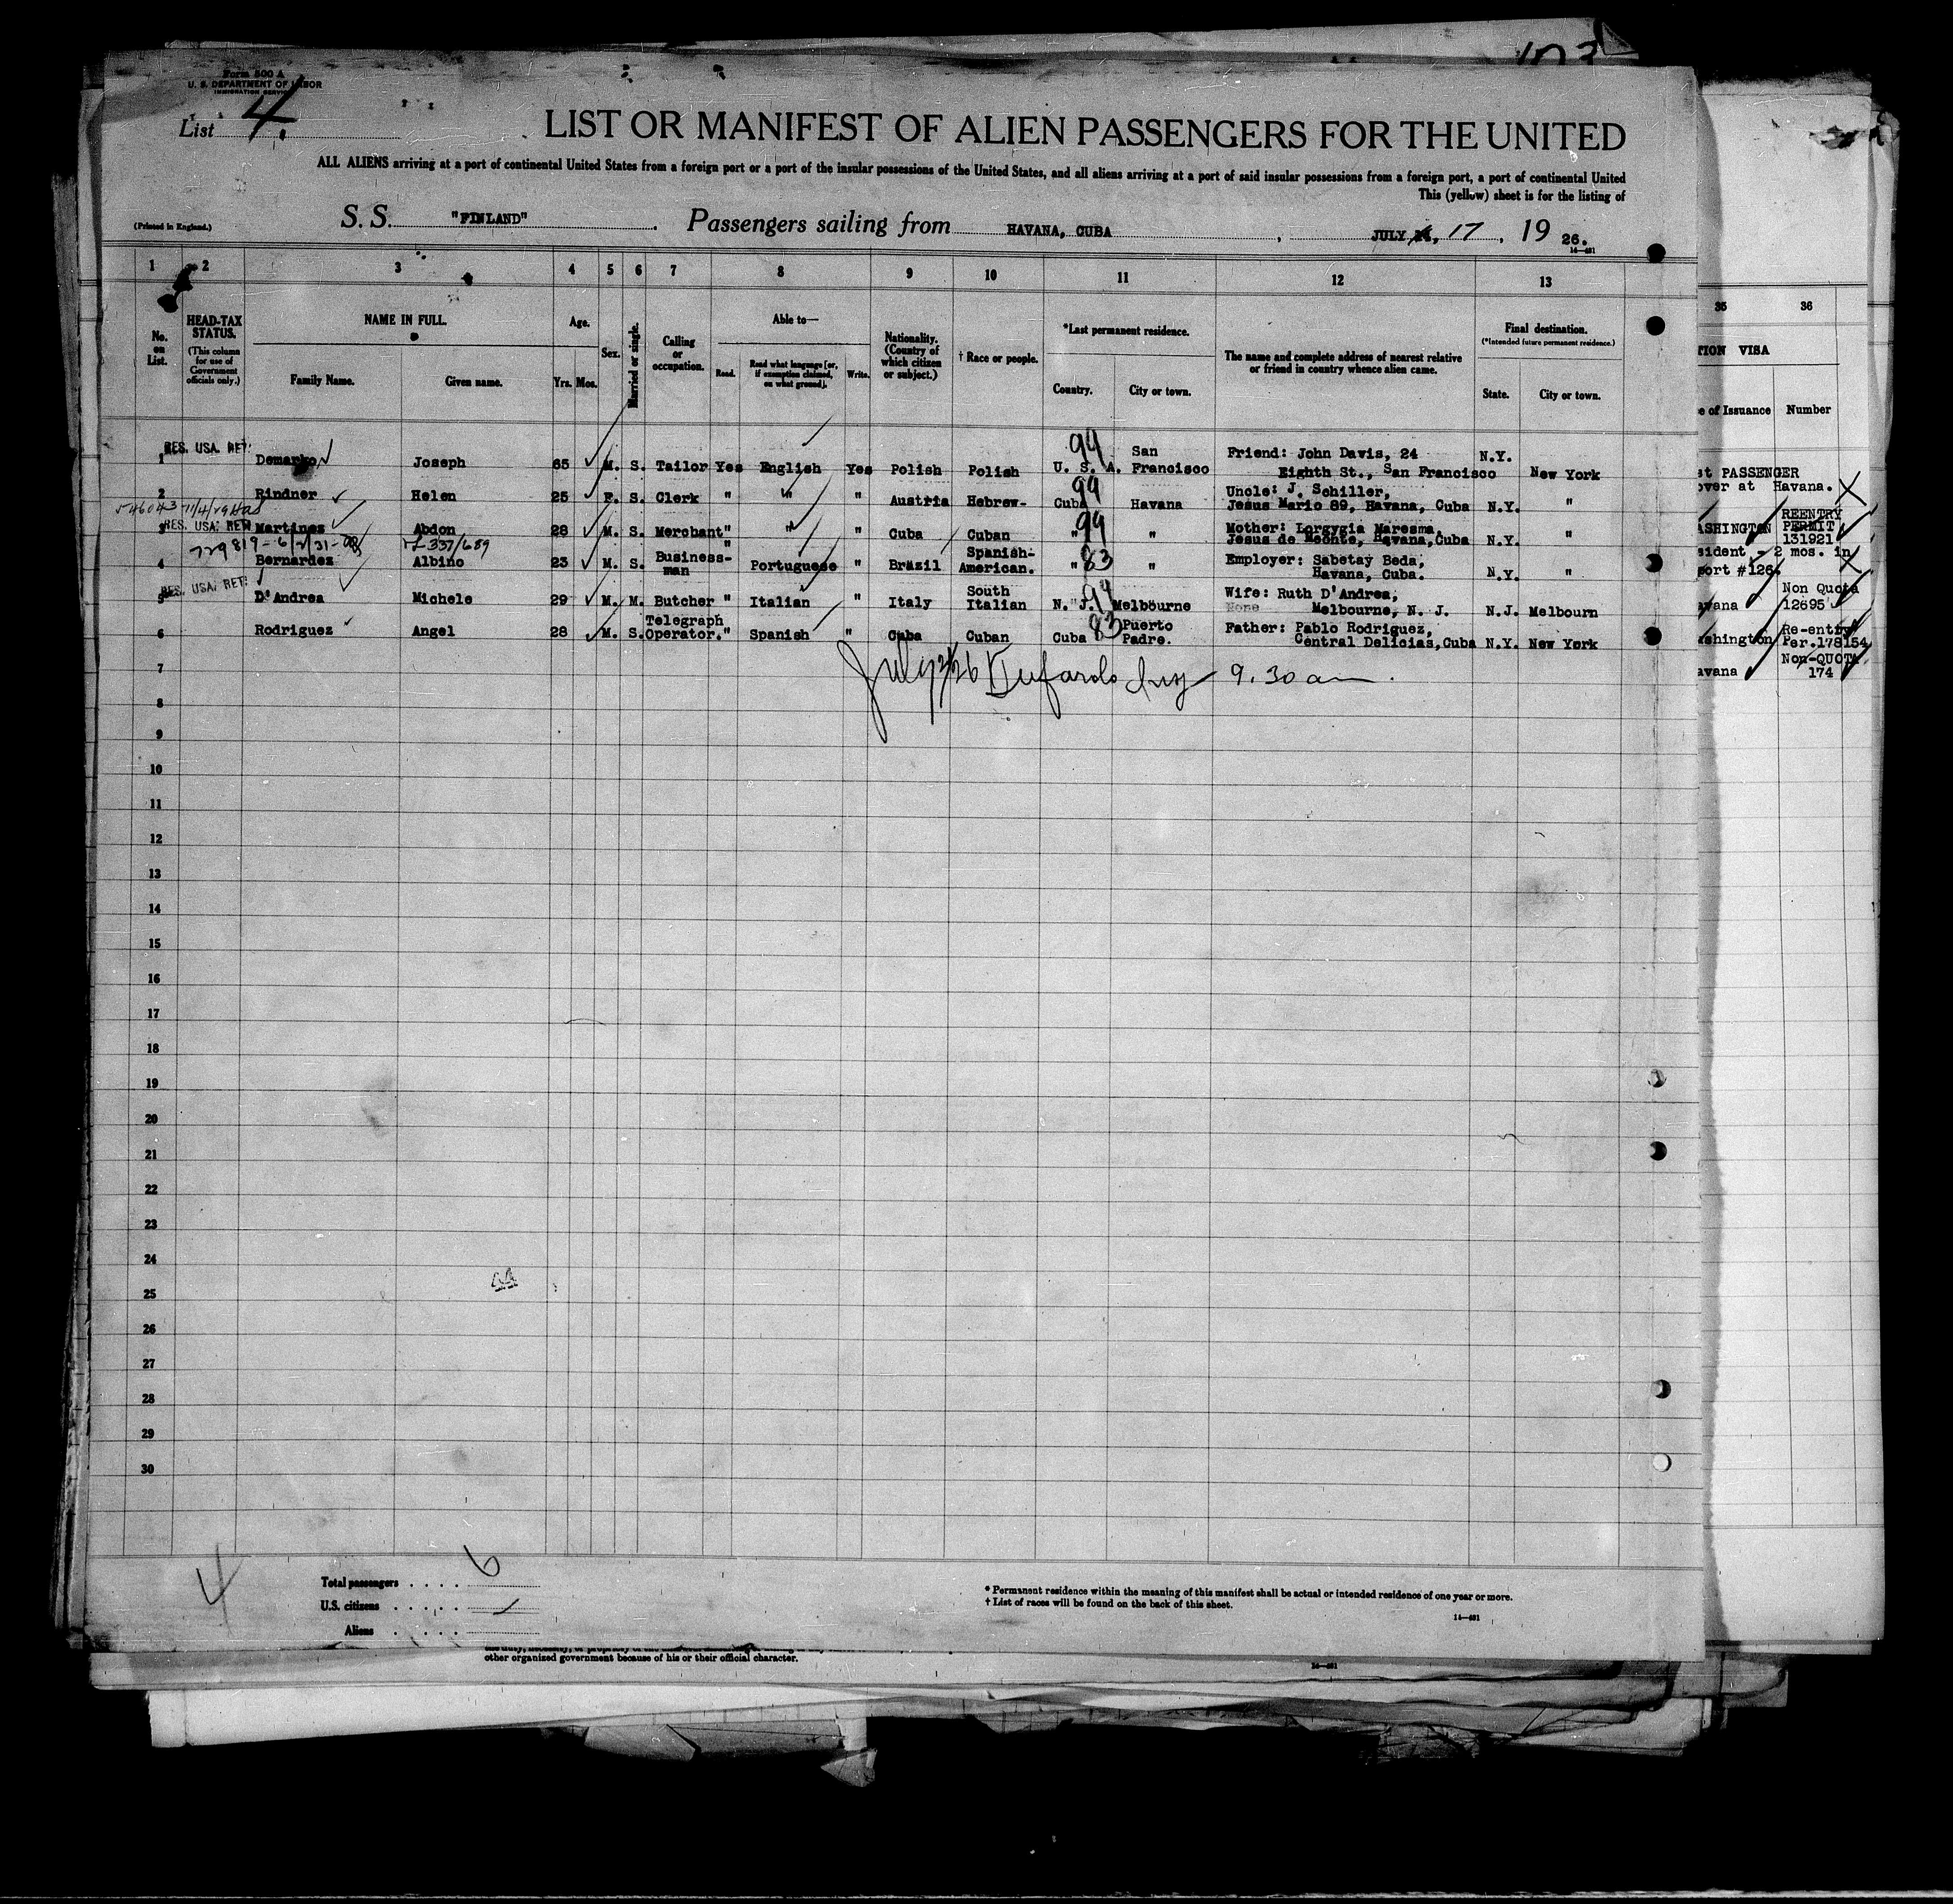 103
Form 500 A
U. S. DEPARTMENT OF LABOR
IMMIGRATION SERVICE
List 4.
LIST OR MANIFEST OF ALIEN PASSENGERS FOR THE UNITED
ALL ALIENS arriving at a port of continental United States from a foreign port or a port of the insular possessions of the United States, and all aliens arriving at a port of said insular possessions from a foreign port, a port of continental United
This (yellow) sheet is for the listing of
(Printed in England.) S. S. "FINLAND" . Passengers sailing from HAVANA, CUBA , JULY 17 , 19 26.
14—481
1 2 3 4 5 6 7 8 9 10 11 12 13 35 36
No. on List.
HEAD-TAX STATUS.
(This column for use of Government officials only.)
NAME IN FULL.
Family Name. Given name.
Age.
Yrs. Mos.
Sex.
Married or single.
Calling or occupation.
Able to—
Read. Read what language [or, if exemption claimed, on what ground]. Write.
Nationality. (Country of which citizen or subject.)
† Race or people.
*Last permanent residence.
Country. City or town.
The name and complete address of nearest relative or friend in country whence alien came.
Final destination.
(*Intended future permanent residence.)
State. City or town.
TION VISA
e of Issuance Number
RES. USA. RET.
1 Demarko Joseph 65 M. S. Tailor Yes English Yes Polish Polish 94 U. S. A. San Francisco Friend: John Davis, 24 Eighth St., San Francisco N.Y. New York
2 Rindner Helen 25 F. S. Clerk " " " Austria Hebrew- 94 Cuba Havana Uncle: J. Schiller, Jesus Mario 89, Havana, Cuba N.Y. "
546043 11/4/29
RES. USA. RET.
3 Martinez Abdon 28 M. S. Merchant " " " Cuba Cuban 94 " " Mother: Lorgygia Maresma, Jesus de Meonte, Havana, Cuba N.Y. "
729819-6/2/31 337/689
4 Bernardez Albino 23 M. S. Business-man " Portuguese " Brazil Spanish-American. 83 " " Employer: Sabetay Beda, Havana, Cuba. N.Y. "
RES. USA. RET.
5 D'Andrea Michele 29 M. M. Butcher " Italian " Italy South Italian 94 N. J. Melbourne Wife: Ruth D'Andrea, None Melbourne, N. J. N.J. Melbourn
6 Rodriguez Angel 28 M. S. Telegraph Operator. " Spanish " Cuba Cuban 83 Cuba Puerto Padre. Father: Pablo Rodriguez, Central Delicias, Cuba N.Y. New York
st PASSENGER
over at Havana.
REENTRY
ASHINGTON PERMIT
131921
sident - 2 mos. in
port #126
Non Quota
avana 12695
Re-entry
ashington Per. 178154
Non-QUOTA
avana 174
7 9.30 am
8
9
10
11
12
13
14
15
16
17
18
19
20
21
22
23
24
25
26
27
28
29
30
4
Total passengers . . . . 6
U.S. citizens . . . . .
Aliens . . . . .
* Permanent residence within the meaning of this manifest shall be actual or intended residence of one year or more.
† List of races will be found on the back of this sheet.
14—481
other organized government because of his or their official character.
14—481